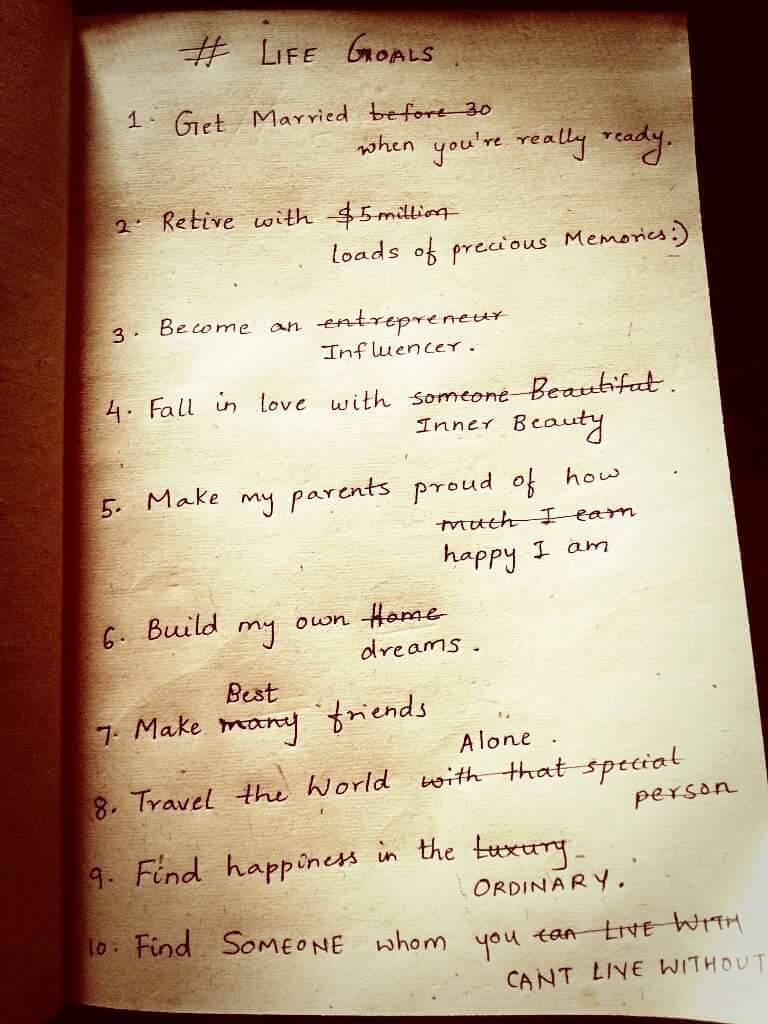 # LIFE GOALS
1. Get Married before 30
when you're really ready.
2. Retire with $5 million
loads of precious Memories :)
3. Become an entrepreneur
Influencer.
4. Fall in love with someone Beautiful.
Inner Beauty
5. Make my parents proud of how
much I earn
happy I am
6. Build my own Home
dreams.
Best
7. Make many friends
Alone.
8. Travel the World with that special
person
9. Find happiness in the Luxury
ORDINARY.
10. Find SOMEONE whom you can LIVE WITH
CANT LIVE WITHOUT